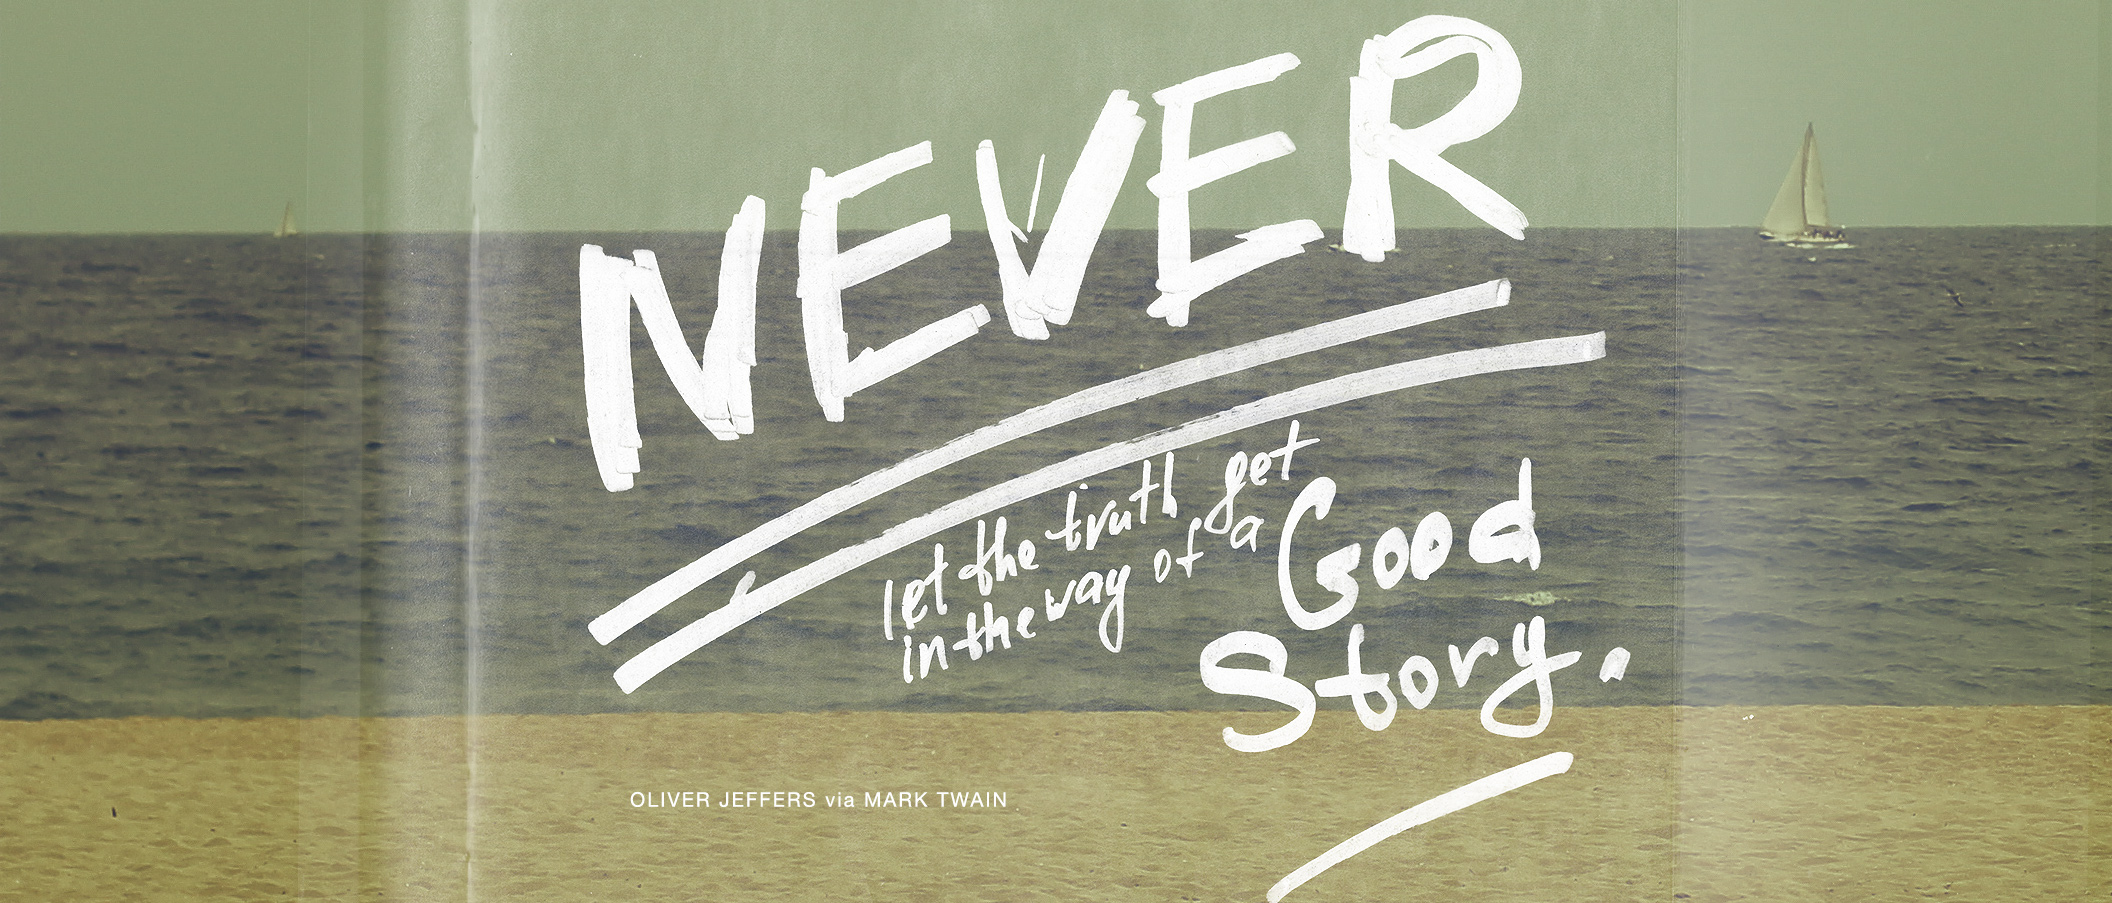 NEVER
let the truth get
in the way of a Good
Story.
OLIVER JEFFERS via MARK TWAIN